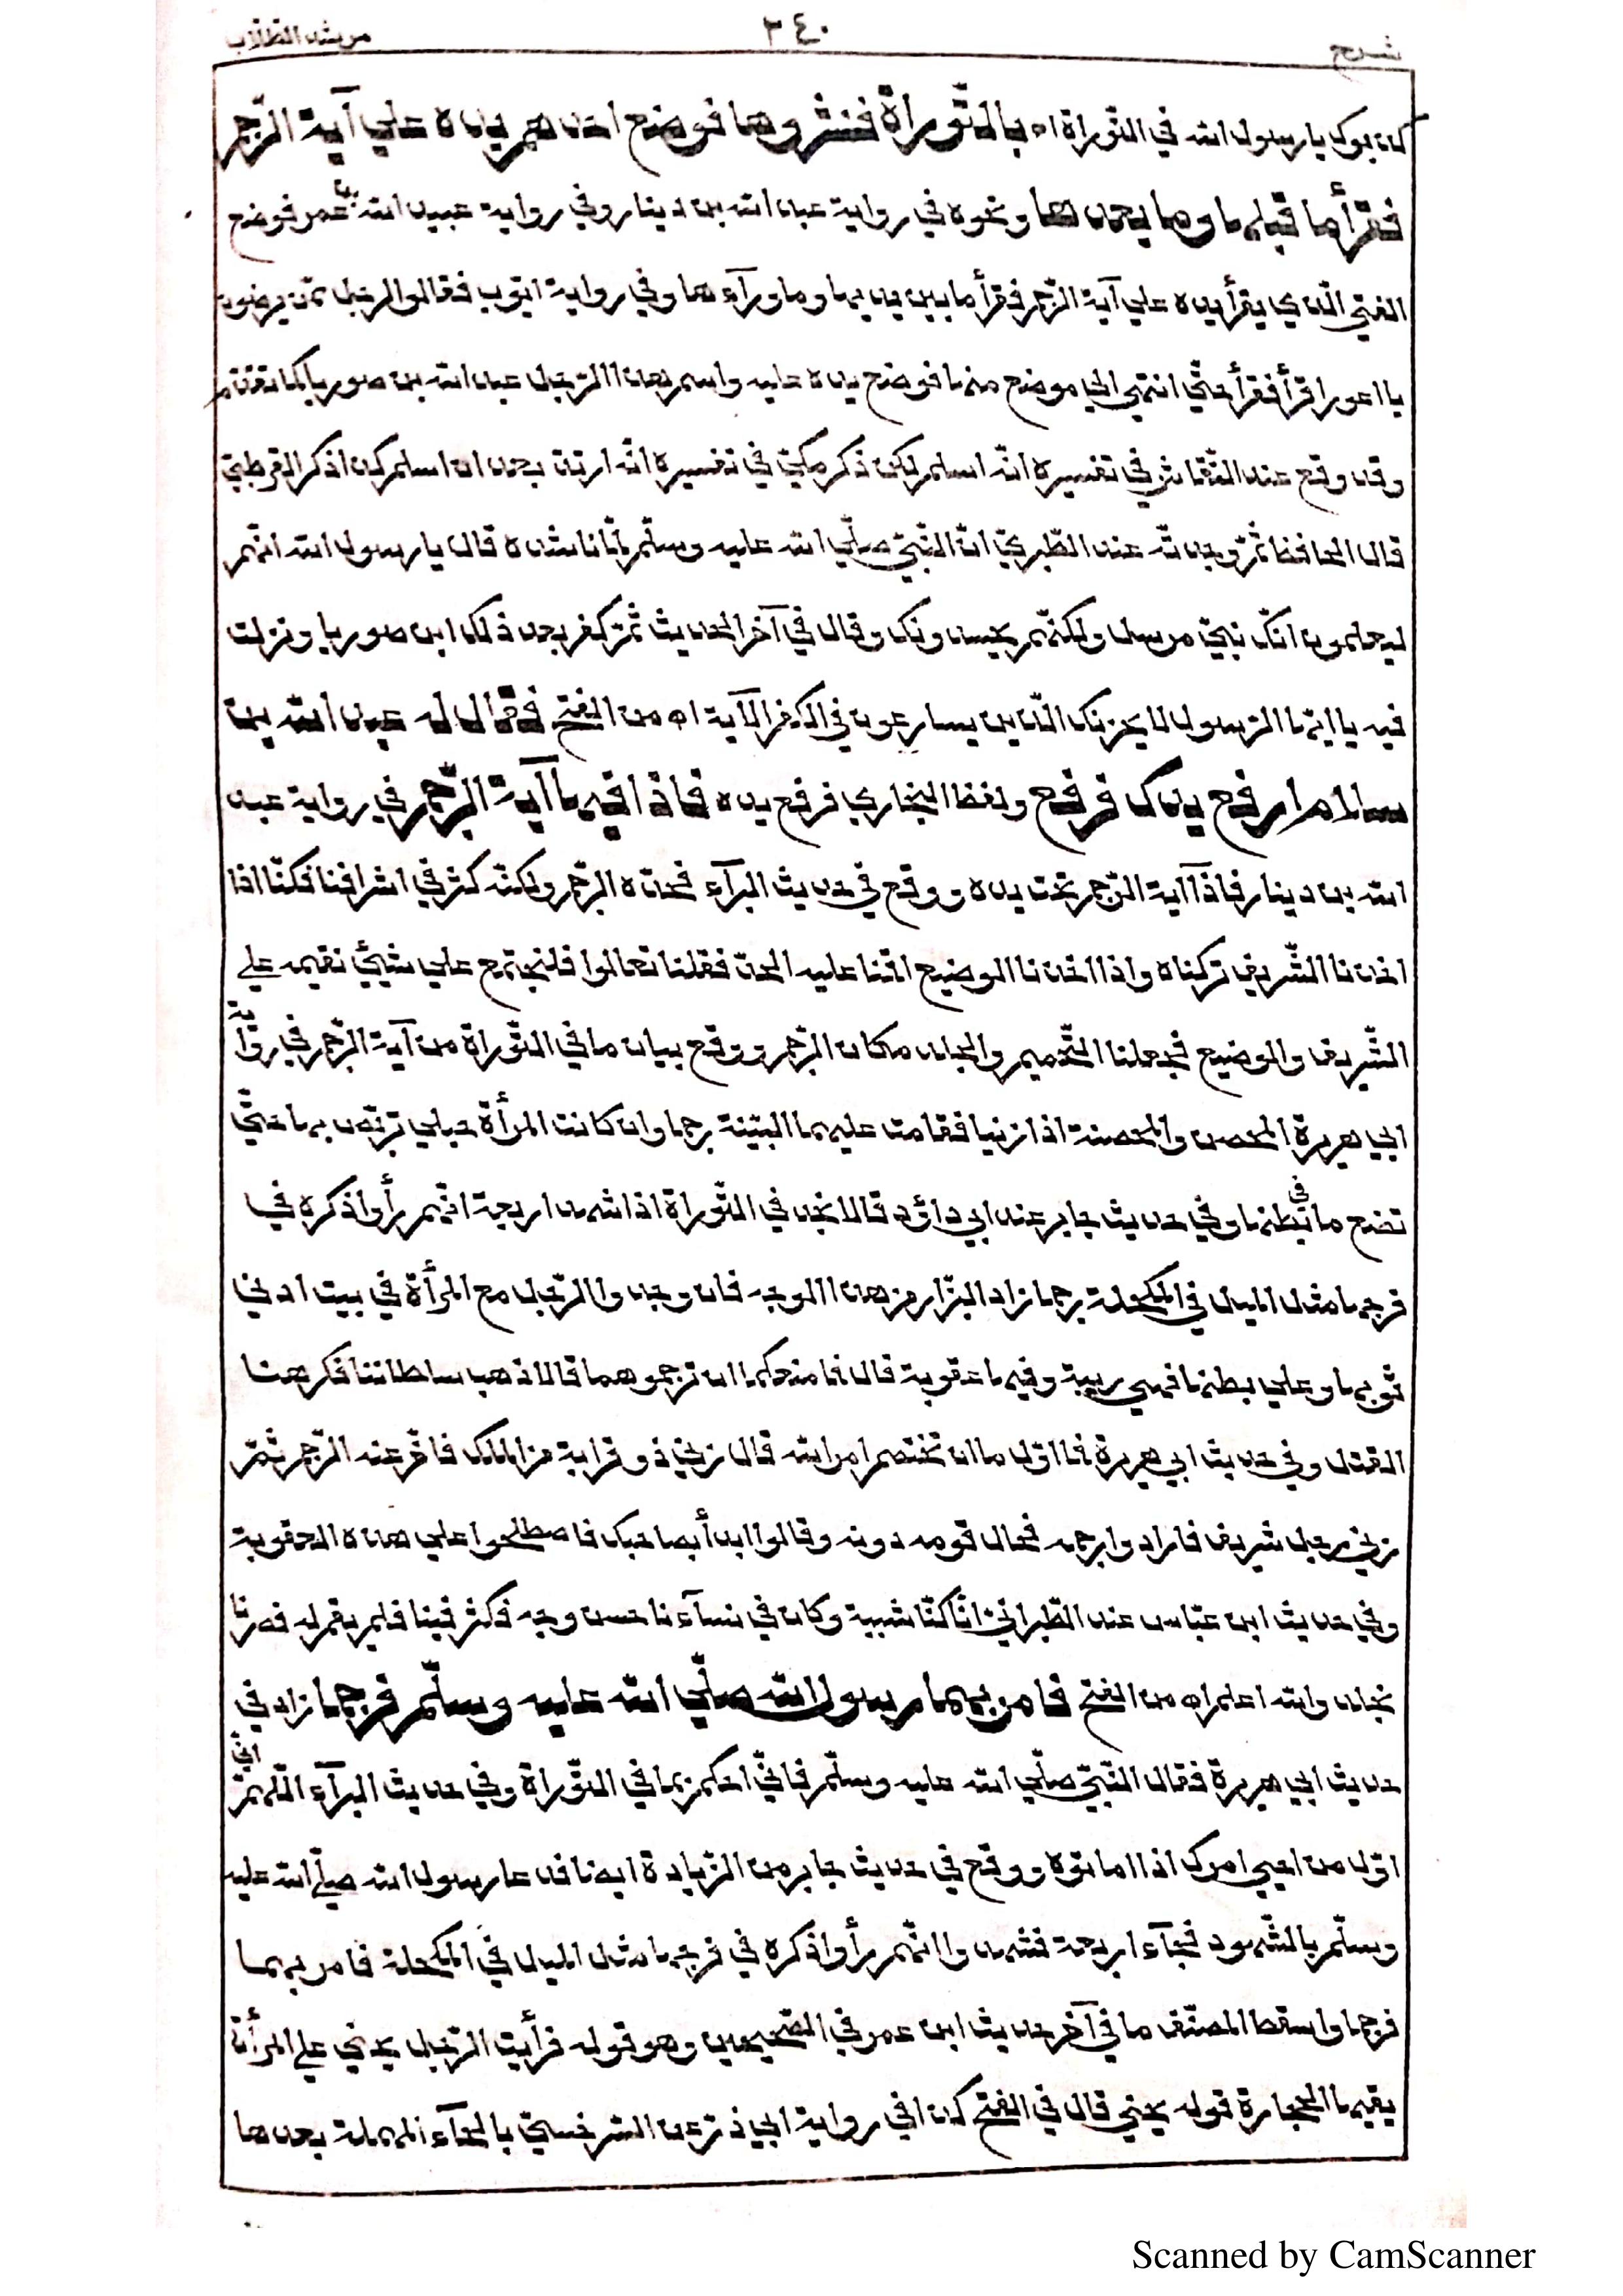 شرح ٣٤٠ مرشد الطلاب
كذبوك يا رسول الله في التوراة اه بالتّوراة فنشروها فوضع احدهم يده علي آية الرّجم
فقرأ ما قبلها وما بعدها ونحوه في رواية عبد الله بن دينار وفي رواية عبيد الله بن عمر فوضع
الفتي الّذي يقرأ يده علي آية الرّجم فقرأ ما بين يديها وما ورآءها وفي رواية ايّوب فقالوا لرجل ممّن يرضون
يا اعور اقرأ فقرأ حتّي انتهي الي موضع منها فوضع يده عليه واسم هذا الرّجل عبد الله بن صوريا كما تقدّم
وقد وقع عند النّقاش في تفسيره انّه اسلم لكن ذكر مكّي في تفسيره انّه ارتدّ بعد ان اسلم كذا ذكر القرطبيّ
قال الحافظ ثمّ وجدته عند الطّبريّ انّ النّبيّ صلّي الله عليه وسلّم لمّا ناشده قال يا رسول الله انّهم
ليعلمون انّك نبيّ مرسل ولكنّهم يحسدونك وقال في آخر الحديث ثمّ كفر بعد ذلك ابن صوريا ونزلت
فيه يا ايّها الرّسول لا يحزنك الّذين يسارعون في الكفر الآية اه من الفتح فقال له عبد الله بن
سلام ارفع يدك فرفع ولفظ البخاري فرفع يده فاذا فيها آية الرّجم في رواية عبد
الله بن دينار فاذا آية الرّجم تحت يده ووقع في حديث البرآء فحدّه الرّجم ولكنّه كثر في اشرافنا فكنّا اذا
اخذنا الشّريف تركناه واذا اخذنا الوضيع اقمنا عليه الحدّ فقلنا تعالوا فلنجتمع علي شيئ نقيمه علي
الشّريف والوضيع فجعلنا التّحميم والجلد مكان الرّجم ووقع بيان ما في التّوراة من آية الرّجم في رواية
ابي هريرة المحصن والمحصنة اذا زنيا فقامت عليهما البيّنة رجما وان كانت المرأة حبلي تربّص بها حتّي
تضع ما في بطنها وفي حديث جابر عند ابي داؤد قالا نجد في التّوراة اذا شهد اربعة انّهم رأوا ذكره في
فرجها مثل الميل في المكحلة رجما زاد البزّار من هذا الوجه فان وجدوا الرّجل مع المرأة في بيت او في
ثوبها وعلي بطنها فهي ريبة وفيها عقوبة قال فما منعكما ان ترجموهما قالا ذهب سلطاننا فكرهنا
القتل وفي حديث ابي هريرة فما اوّل ما ان تختصم امر الله قال زني ذو قرابة من الملك فاخّر عنه الرّجم ثمّ
زني رجل شريف فارادوا رجمه فحال قومه دونه وقالوا ابدأ بصاحبك فاصطلحوا علي هذه العقوبة
وفي حديث ابن عبّاس عند الطّبرانيّ انّا كنّا شببة وكان في نسآءنا حسن وجه فكثر فينا فلم يقم له فصرنا
نجلد والله اعلم اه من الفتح فامر بهما رسول الله صلّي الله عليه وسلّم فرجما زاد في
حديث ابي هريرة فقال النّبيّ صلّي الله عليه وسلّم فانّي احكم بما في التّوراة وفي حديث البرآء اللّهمّ انّي
اوّل من احيي امرك اذ اماتوه ووقع في حديث جابر من الزّيادة ايضا فدعا رسول الله صلّي الله عليه
وسلّم بالشّهود فجآء اربعة فشهدوا انّهم رأوا ذكره في فرجها مثل الميل في المكحلة فامر بهما
فرجما واسقط المصنّف ما في آخر حديث ابن عمر في الصّحيحين وهو قوله فرأيت الرّجل يحني علي المرأة
يقيها الحجارة قوله يحني قال في الفتح كذا في رواية ابي ذرّ عن السّرخسيّ بالحآء المهملة بعدها
Scanned by CamScanner